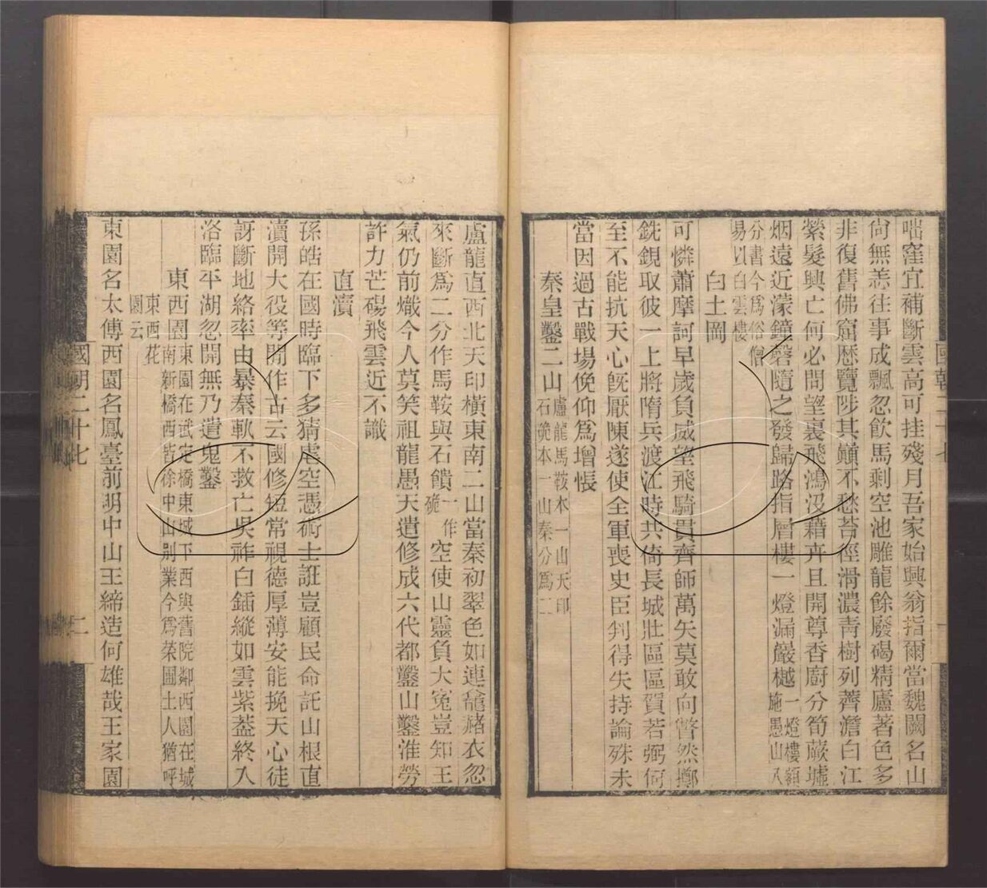 咄窪宜補斷雲高可挂殘月吾家始興翁指爾當魏闕名山
尙無恙往事成飄忽飲馬剩空池雕龍餘廢碣精廬著色多
非復舊佛窟歷覽陟其顛不愁苔徑滑濃靑樹列薺澹白江
縈髮興亡何必問望裏飛鴻沒藉卉且開尊香廚分筍蕨墟
烟遠近濛鐘磬隨之發歸路指層樓一燈漏嚴樾一燈樓額施愚山八
分書今爲俗僧易以白雲樓
白土岡
可憐蕭摩訶早歲負威望飛騎貫齊師萬矢莫敢向瞥然擲
銑鋧取彼一上將隋兵渡江時共倚長城壯區區賀若弼何
至不能抗天心旣厭陳遂使全軍喪史臣判得失持論殊未
當因過古戰場俛仰爲增悵
秦皇鑿二山盧龍馬鞍本一山天印石硊本一山秦分爲二
盧龍直西北天印橫東南二山當秦初翠色如連龕赭衣忽
來斷爲二分作馬鞍與石饋一作硊空使山靈負大寃豈知王
氣仍前熾今人莫笑祖龍愚天遣修成六代都鑿山鑿淮勞
許力芒碭飛雲近不識
直瀆
孫皓在國時臨下多猜虐空憑術士誑豈顧民命託山根直
瀆開大役等閒作古云國修短常視德厚薄安能挽天心徒
訝斷地絡率由暴秦軌不救亡吳祚白鍤縱如雲紫蓋終入
洛臨平湖忽開無乃遣鬼鑿
東西園東園在武定橋東城下西與舊院鄰西園在城南新橋西皆徐中山別業今爲榮圃土人猶呼
東西花園云
東園名太傅西園名鳳臺前明中山王締造何雄哉王家園
國朝二十七
二